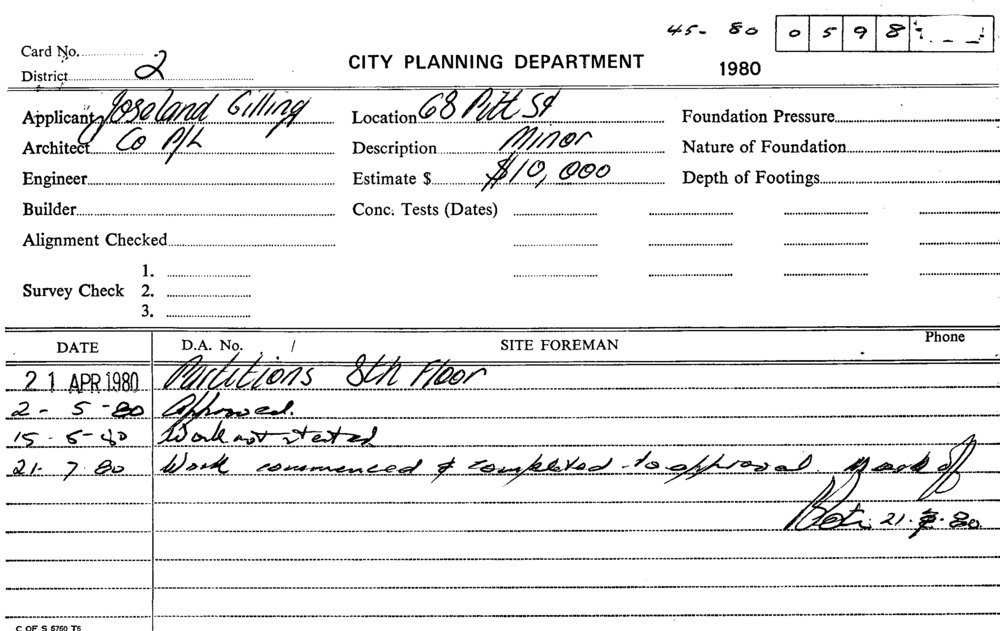 45- 80 0598
Card No.
District 2
CITY PLANNING DEPARTMENT
1980
Applicant Joseland Gilling
Location 68 Pitt St
Foundation Pressure
Architect Co P/L
Description Minor
Nature of Foundation
Engineer
Estimate $ $10,000
Depth of Footings
Builder
Conc. Tests (Dates)
Alignment Checked
1.
Survey Check 2.
3.
DATE D.A. No. / SITE FOREMAN Phone
21 APR 1980 Partitions 8th Floor
2-5-80 Approved.
15-6-80 Work not started
21-7-80 Work commenced & completed to approval.
21.7.80
C OF S 6760 T5